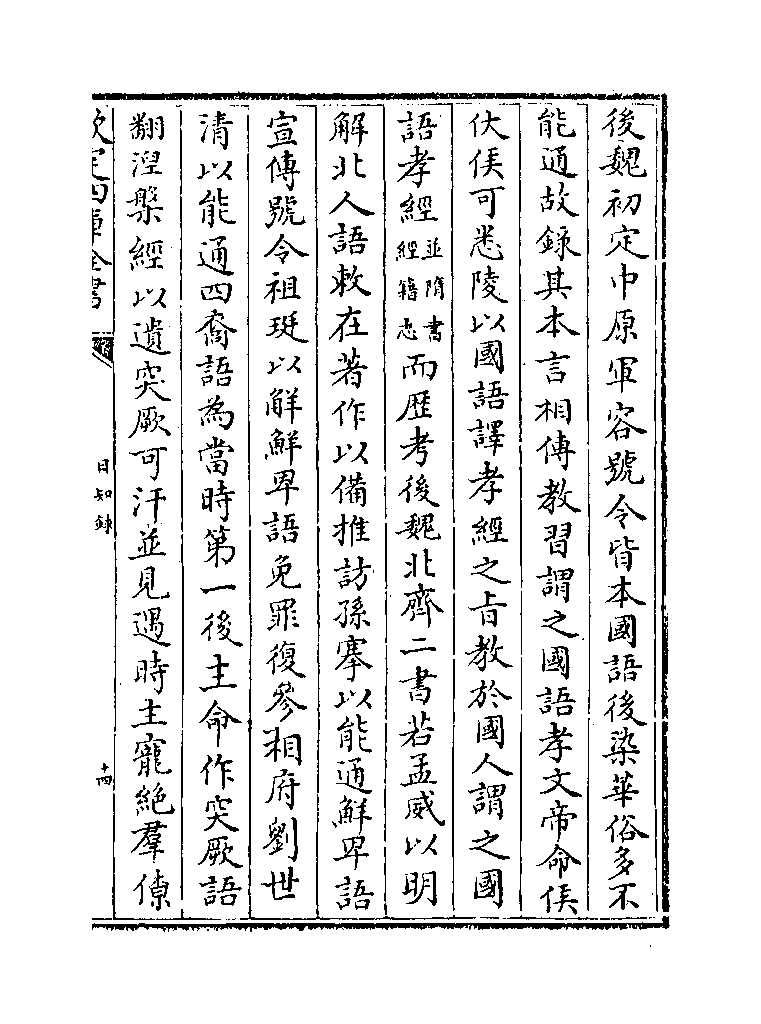 後魏初定中原軍容號令皆本國語後染華俗多不
能通故錄其本言相傳教習謂之國語孝文帝命侯
伏侯可悉陵以國語譯孝經之旨教於國人謂之國
語孝經並隋書經籍志而歷考後魏北齊二書若孟威以明
解北人語敕在著作以備推訪孫搴以能通鮮卑語
宣傳號令祖珽以解鮮卑語免罪復參相府劉世
清以能通四裔語為當時第一後主命作突厥語
翻涅槃經以遺突厥可汗並見遇時主寵絶羣僚
欽定四庫全書
日知錄
十四